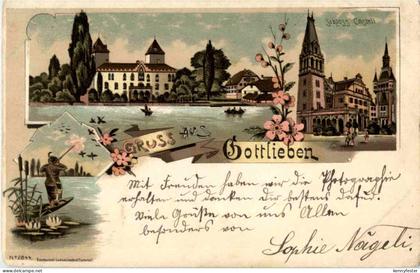 Schloss Castell
GRUSS aus
Gottlieben
Mit Freuden haben wir die Photographie
erhalten und danken dir bestens dafür.
Viel Grüße von uns Allen
besonders von
Sophie Nägeli